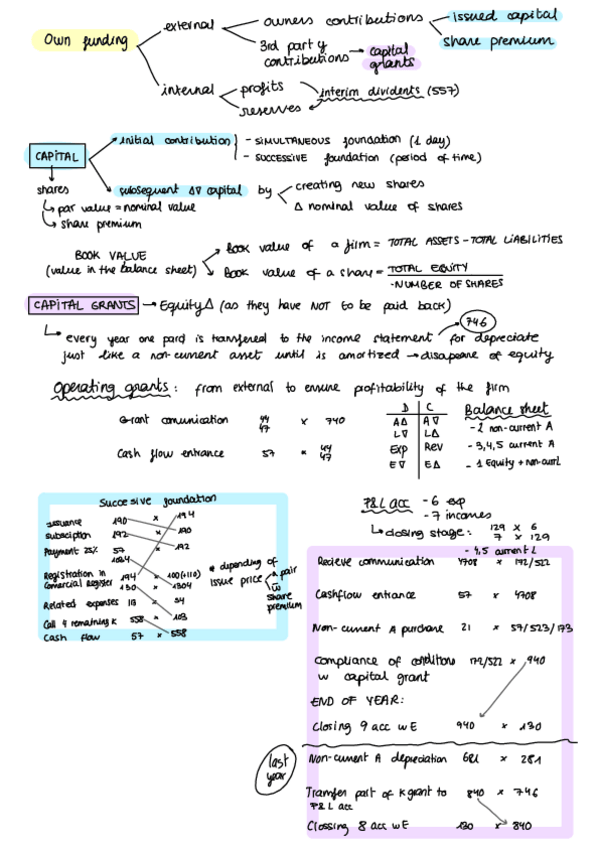 Own funding
external
owners contributions
issued capital
share premium
3rd party contributions → capital grants
internal
profits
reserves
interim dividents (557)
CAPITAL
initial contribution
- SIMULTANEOUS foundation (1 day)
- SUCCESSIVE foundation (period of time)
shares
par value = nominal value
share premium
subsequent Δ∇ capital by
creating new shares
Δ nominal value of shares
BOOK VALUE
(value in the balance sheet)
Book value of a firm = TOTAL ASSETS - TOTAL LIABILITIES
Book value of a share = TOTAL EQUITY
NUMBER OF SHARES
CAPITAL GRANTS → Equity Δ (as they have NOT to be paid back)
746
every year one part is transfered to the income statement for depreciate
just like a non-current asset until is amortized → disappeare of equity
Operating grants: from external to ensure profitability of the firm
Grant comunication 44 47 x 740
Cash flow entrance 57 x 44 47
D C
AΔ A∇
L∇ LΔ
Exp Rev
E∇ EΔ
Balance sheet
- 2 non-current A
- 3,4,5 current A
- 1 Equity + non-curr L
Succesive foundation
issuance 190 x 194
subsciption 192 x 190
Payment 25% 57 x 192
1034
Registration in
Comercial Register 194 x 100 (+110)
130 x 1304
Related expenses 113 x 54
Call 4 remaining K 558 x 103
Cash flow 57 x 558
* depending of
issue price
pair
w
share
premium
P&L acc - 6 exp
- 7 incomes
closing stage: 129 x 6
7 x 129
- 4,5 current L
Recieve communication 4708 x 172/522
Cashflow entrance 57 x 4708
Non-current A purchase 21 x 57/523/173
Compliance of conditions 172/522 x 940
w capital grant
END OF YEAR:
Closing 9 acc w E 940 x 130
last
year
Non-current A depreciation 681 x 281
Transfer part of K grant to 840 x 746
P&L acc
Clossing 8 acc w E 130 x 840